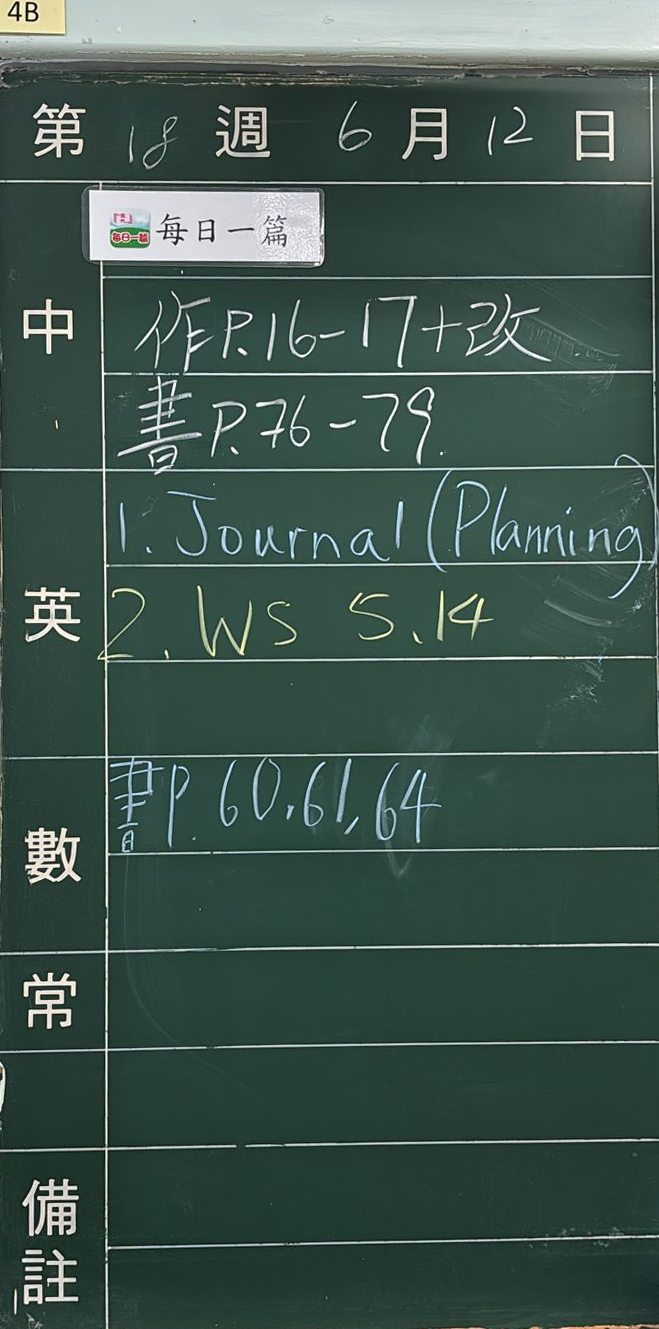 4B
第 18 週 6 月 12 日
每日一篇 每日一篇
中
作P.16-17+改
書P.76-79.
英
1. Journal (Planning)
2. WS 5.14
數
書P. 60,61,64
常
備註